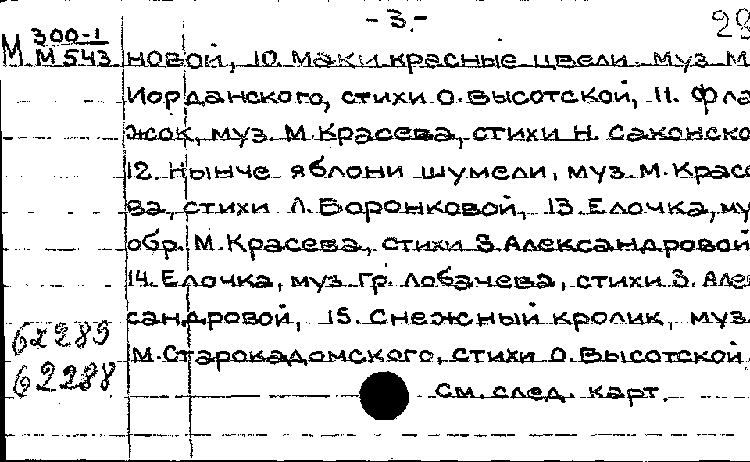 -3.-
28
М 300-1
М 543
новой, 10. Маки красные цвели. муз. М.
Иорданского, стихи О. Высотской, 11. Фла
жок, муз. М. Красева, стихи Н. Саконско
12. Нынче яблони шумели, муз. М. Красе
ва, стихи Л. Воронковой, 13. Елочка, му
обр. М. Красева, стихи З. Александровой
14. Елочка, муз. Гр. Лобачева, стихи З. Алек
сандровой, 15. Снежный кролик, муз.
М. Старокадомского, стихи О. Высотской
62289
62288
См. след. карт.